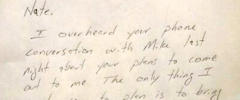 Nate.
I overheard your phone
conversation with Mike last
night about your plans to come
out to me. The only thing I
to plan is to bring